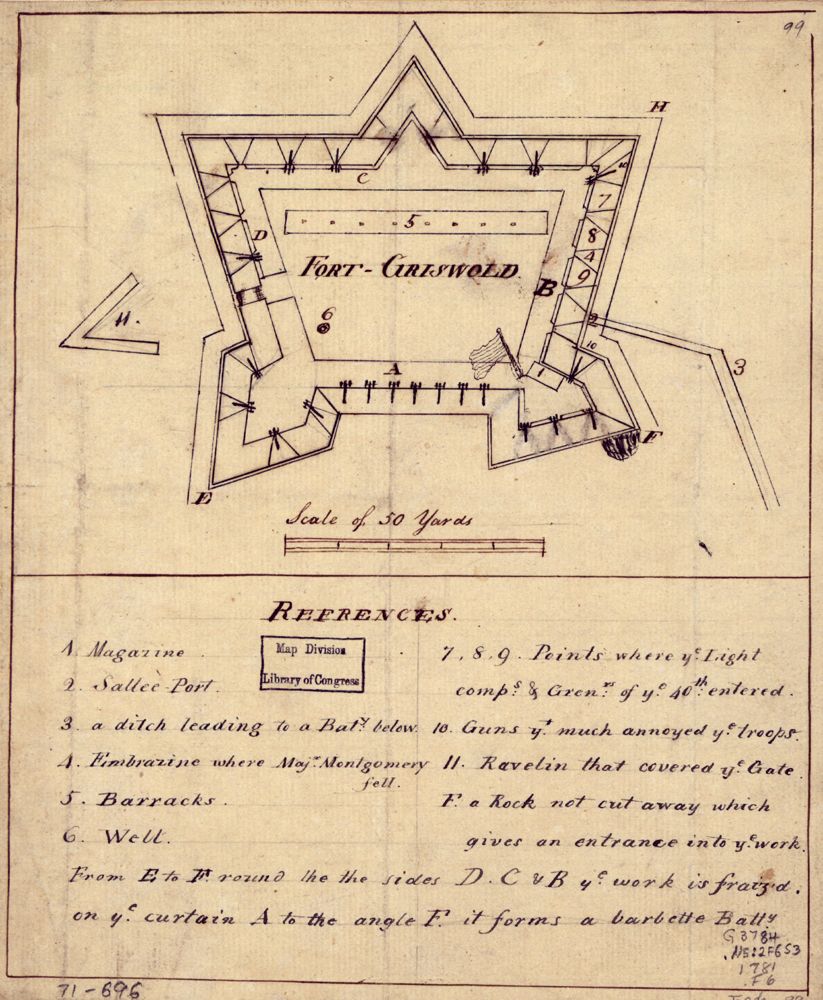 99
H
10
C
7
5
8
D
4
FORT-GRISWOLD.
9
B
6
2
11.
10
A
1
3
F
E
Scale of 50 Yards
REFRENCES.
1. Magazine.
2. Sallee-Port.
3. a ditch leading to a Baty. below.
4. Embrazine where Majr. Montgomery
fell.
5. Barracks.
6. Well.
Map Division
Library of Congress
7, 8, 9. Points where ye. Light
comps. & Grenrs. of ye. 40th. entered.
10. Guns yt. much annoyed ye. troops.
11. Ravelin that covered ye. Gate.
F. a Rock not cut away which
gives an entrance into ye. work.
From E to F. round the the sides D. C & B ye. work is fraiz'd.
on ye. curtain A to the angle F. it forms a barbette Batty
G3784
.N5:2F6S3
1781
.F6
71-696